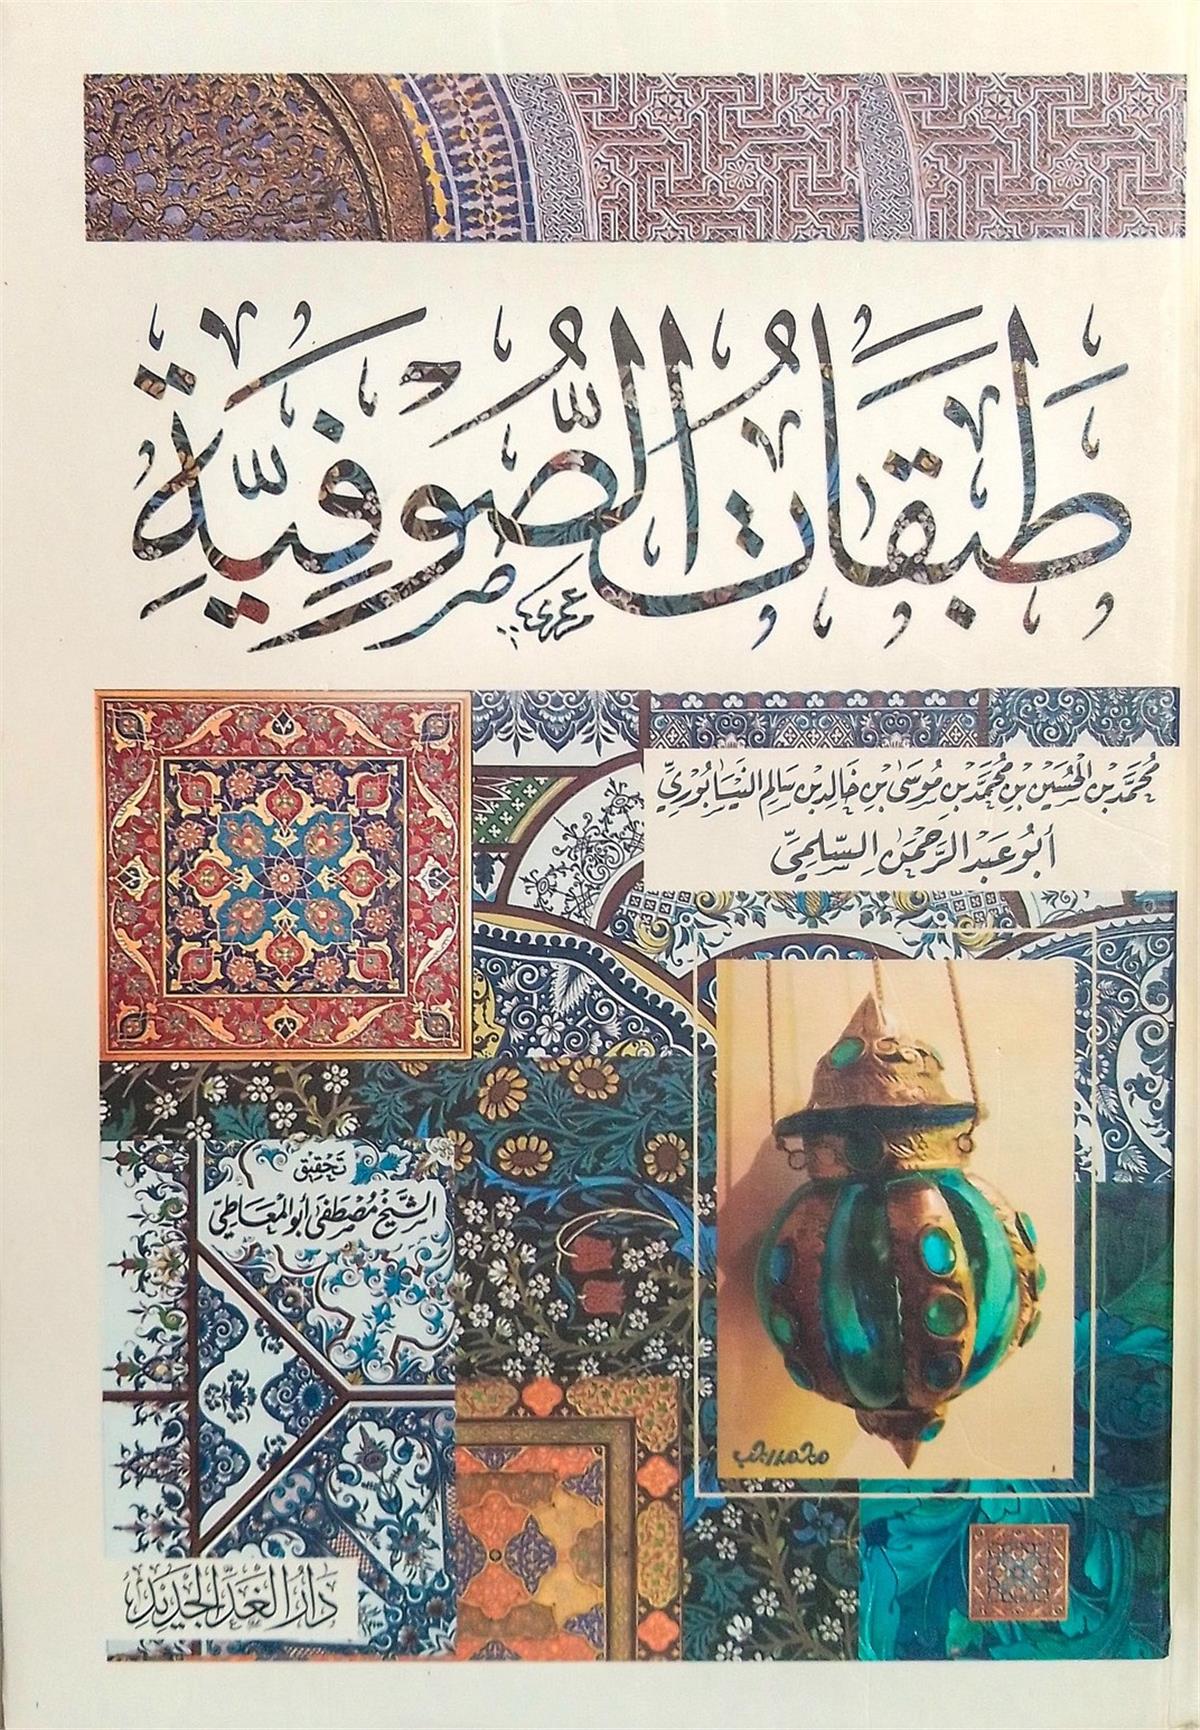 طَبَقَاتُ الصُّوفِيَّةِ
مُحَمَّد بْن الحُسَيْن بْن مُحَمَّد بْن مُوسَى بْن خَالِد بْن سَالِم النَّيْسَابُورِيّ
أَبُو عَبْد الرَّحْمَن السُّلَمِيّ
تَحْقِيق
الشَّيْخ مُصْطَفَى أَبُو المْعَاطِي
دَارُ الْغَدِّ الْجَدِيد